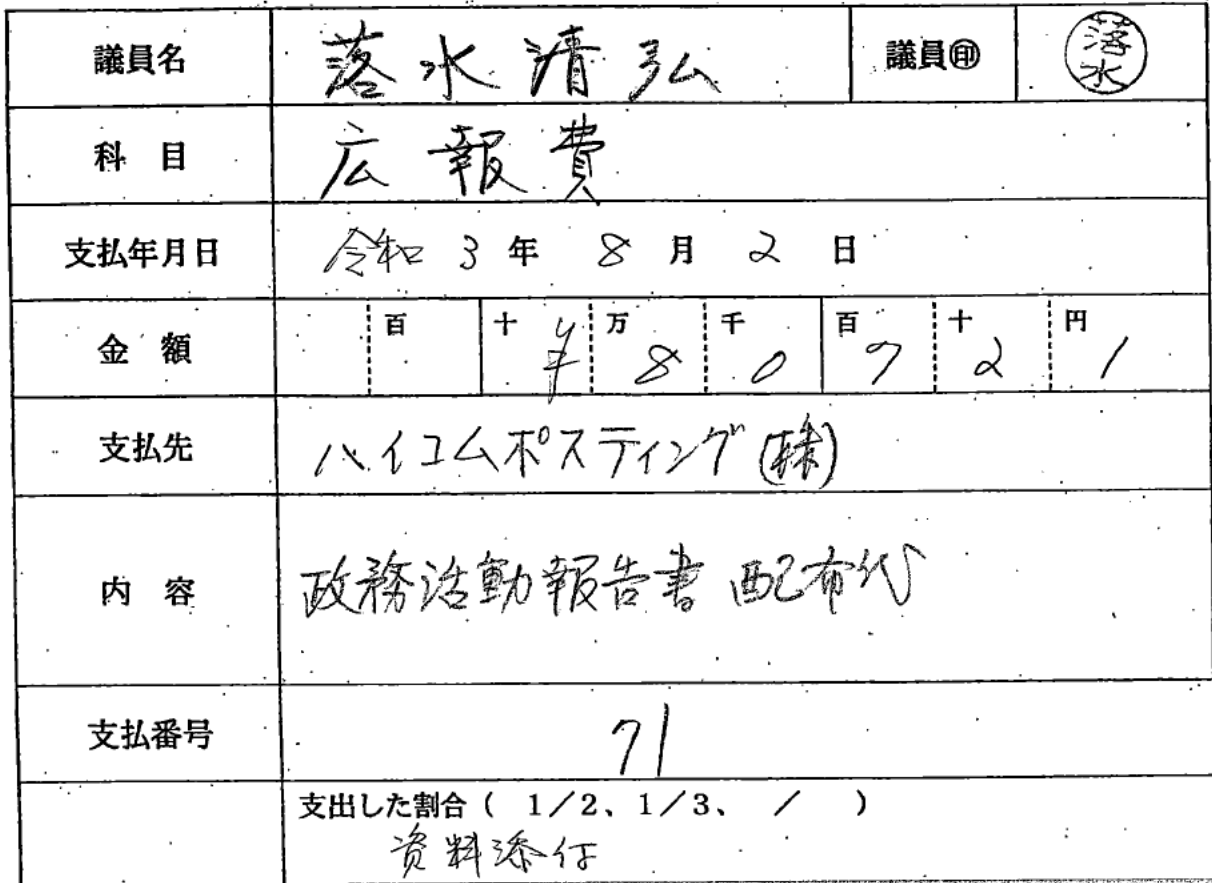 議員名 落水清弘 議員㊞ 落水
科 目 広報費
支払年月日 令和 3 年 8 月 2 日
金 額 百 十 ¥ 万 8 千 0 百 7 十 2 円 1
支払先 ハイコムポスティング(株)
内 容 政務活動報告書 配布代
支払番号 71
支出した割合( 1/2、1/3、 / )
資料添付